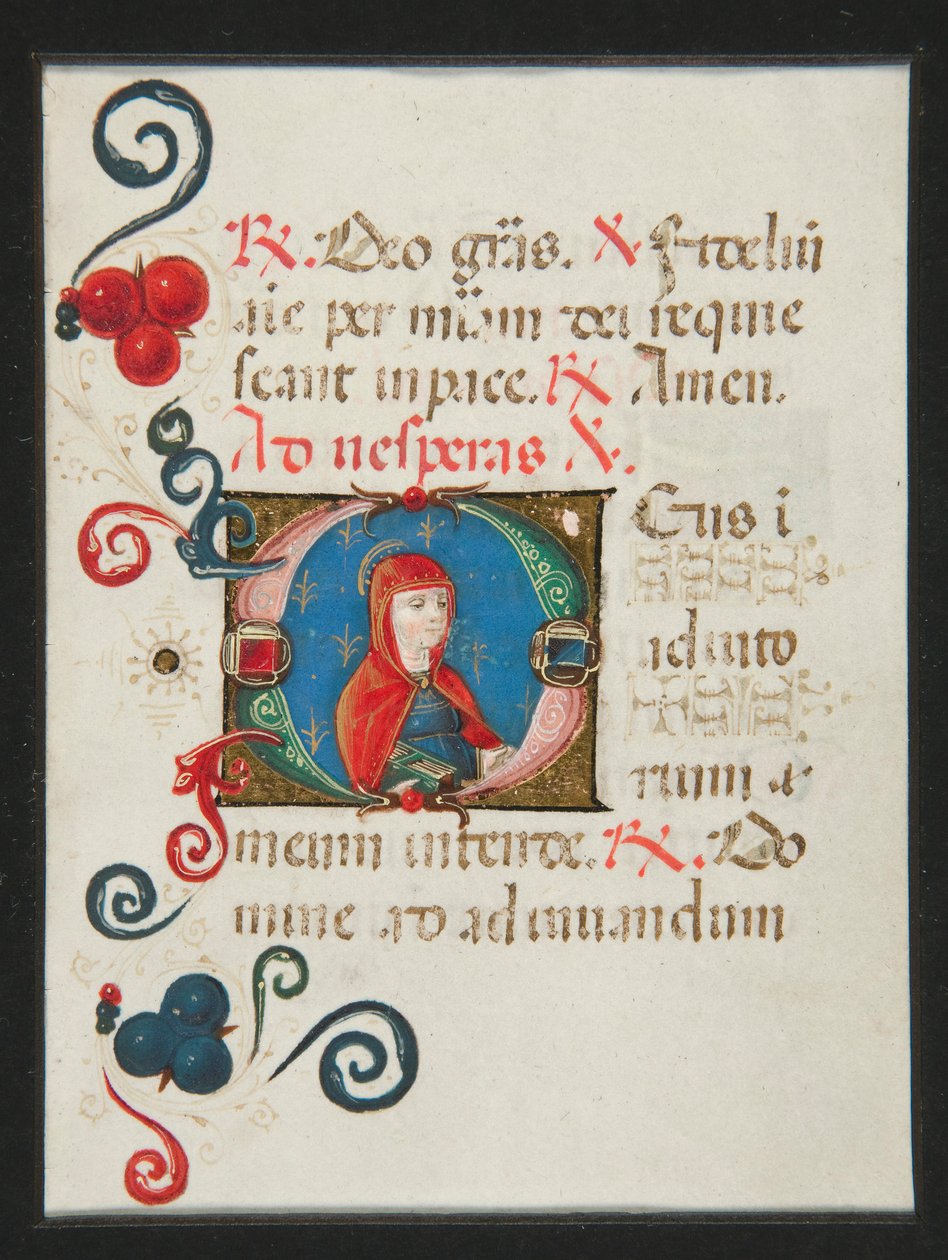 ℟. Deo grãs. ℣ fideliũ
aĩe per mĩam dei requie
scant in pace. ℟ Amen.
Ad uesperas ℣.
Eus i
adiuto
rium &
meum intende. ℟. Do
mine ad adiuuandum